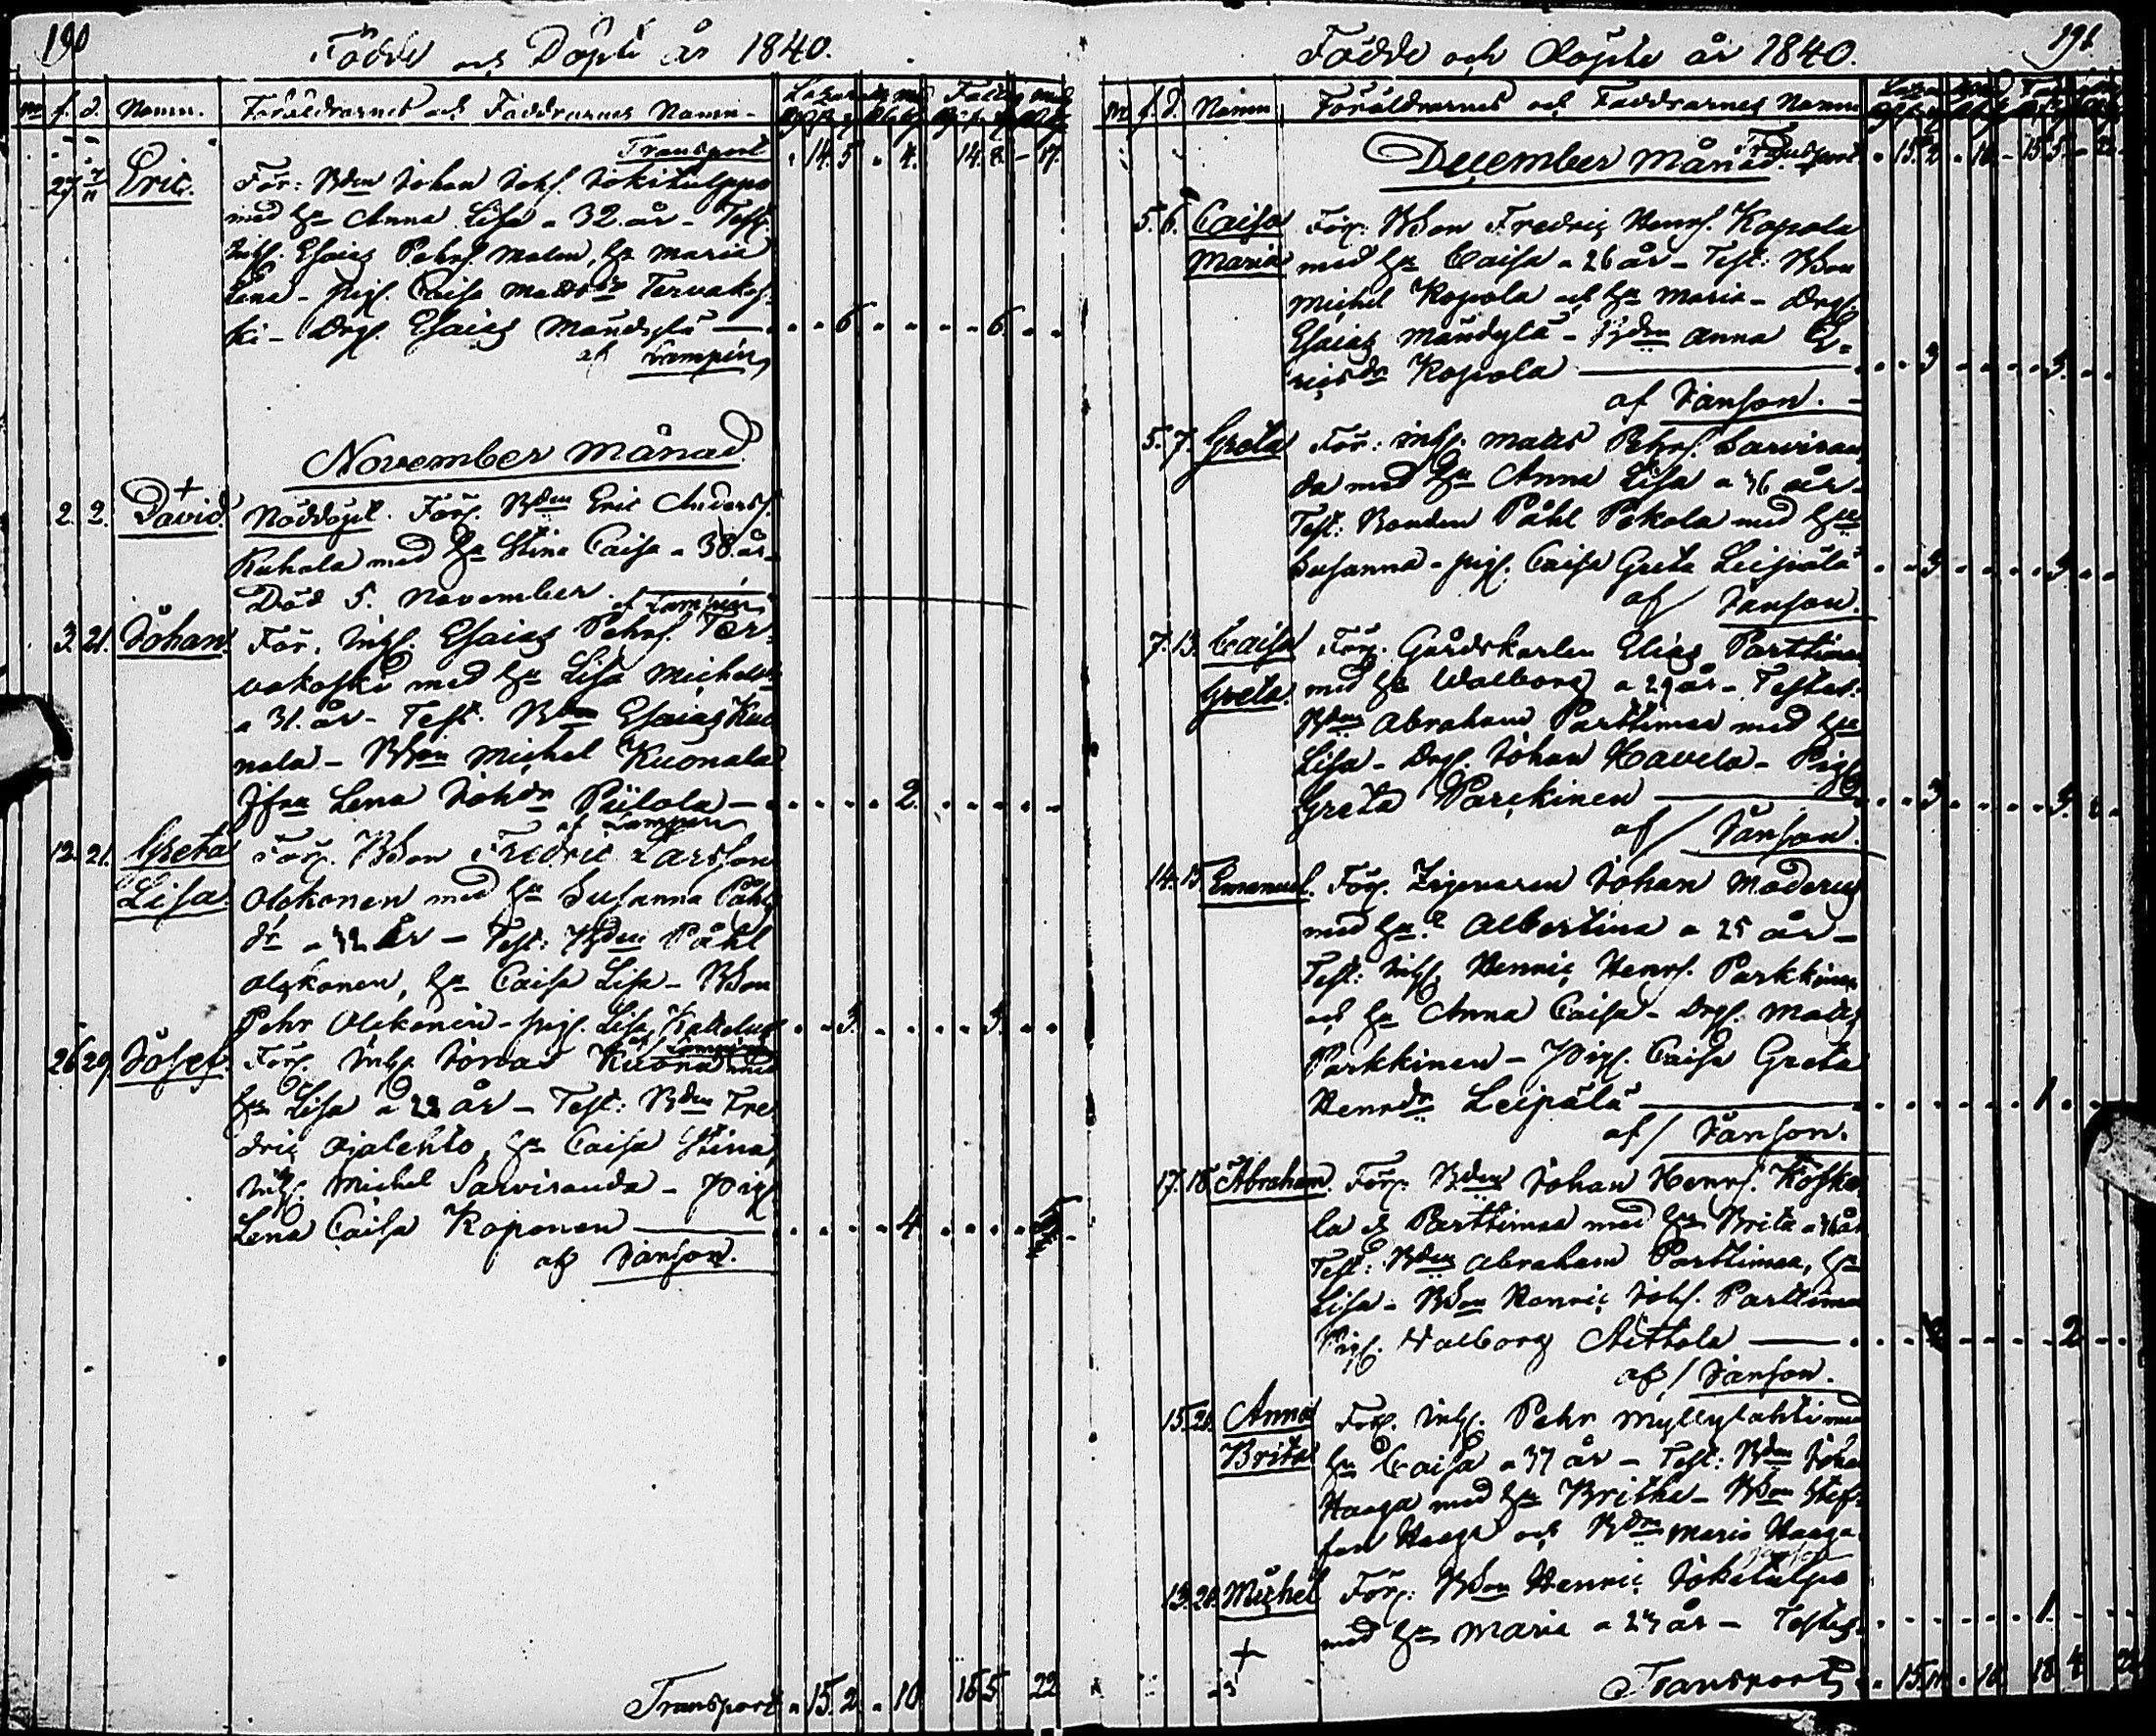 190
Födde och Döpte år 1840.
m f. d. Namn. Föräldrarnes och Faddrarnes Namn
Transport 14. 5 4. 14. 17.
27 Eric. För: Bden Johan Johs. Jokitulppo
med hu Anna Lisa a 32 år - Test.
Inhs. Esaias Pehrs. Malm, hu Maria
Lena - pig. Caisa Tervakos
ki - Drg. Esaias Mändylä 6 6
af Lampén
November Månad.
2. 2. David. Nöddöpt. Förs. Bden Eric Anderss.
Ruhala med hu Stina Caisa a 38 år
Död 5. November. af Lampén
3. 21. Johan. För. Inhs. Esaias Pehrs. Ter
vakoski med hu Lisa Michelsdr
a 31. år - Test. Bdn Esaias Kuo
nala - Bson Michel Kuonala
Jfru Lena Johdr Piilola 2.
af Lampén
12. 21. Greta Förs. Bson Fredric Larsson
Lisa. Olckonen med hu Susanna Påhls
dr a år - Test: Bden Påhl
Olckonen, hu Caisa Lisa - Bson
Pehr Olckonen - pig. Lisa 3. 3.
26 29. Josef. Förs. Inhs Jonas Kuona med
hu Lisa a 22 år - Test: Bden Fre
dric Ojalehto, hu Caisa Stina
Inhs. Michel Sarviranda - Pig.
Lena Caisa Koponen 4
af Janson.
Transport 15. 2. 10 15 5 22
191
Födde och Döpte år 1840.
m f. d. Namn Föräldrarnes och Faddrarnes Namn
December Månad. Transport 15. 2 10 15 5 22
5. 6. Caisa Förs. Bson Fredric Henrs. Kopola
Maria med hu Caisa a 26 år - Test: Bson
Michel Kopola och hu Maria - Drg.
Esaias Mändylä - Anna E-
ricsdr Kopola 3 3.
af Janson.
5. 7. Greta För: Inhs. Matts Pehrs. Sarviran
da med hu Anna Lisa a 36 år
Test: Bonden Påhl Pekola med hu
Susanna - pig. Caisa Greta Leipälä 3 3
af Janson.
7. 13. Caisa Förs. Gårdskarlen Elias Parttimaa
Greta. med hu Walborg a 29 år - Testes:
Bden Abraham Parttimaa med hu
Lisa - Drg. Johan Kavela - Pig.
Greta Parckinen 3 3.
af Janson.
14. 15. Emanuel. Förs. Zigenaren Johan Moderus
med hu Albertina a 25 år -
Test: Inhs. Henric Henrs. Parkkinen
och hu Anna Caisa - Drg. Matts
Parkkinen - Pig. Caisa Greta
Henrdr Leipälä 1.
af Janson.
17. 18. Abraham. Förs. Bden Johan Henrs. Koske
la Parttimaa med hu Brita a 36 år
Test: Bden Abraham Parttimaa, hu
Lisa - Bson Henric Johs. Parttimaa
Pig. Walborg Aittola 2
af Janson.
15. 20. Anna Förs. Inhs. Pehr Myllylahti med
Brita hu Caisa a 37 år - Test: Bden Johan
Haaga med hu Britha - Bson Stef-
fan Haaga och Bdr Maria Haaga
13. 20. Michel Förs: Bson Henric Jokitulpo
med hu Maria a 24 år - Testes 1.
Transport 15. 11. 10. 18 4 22